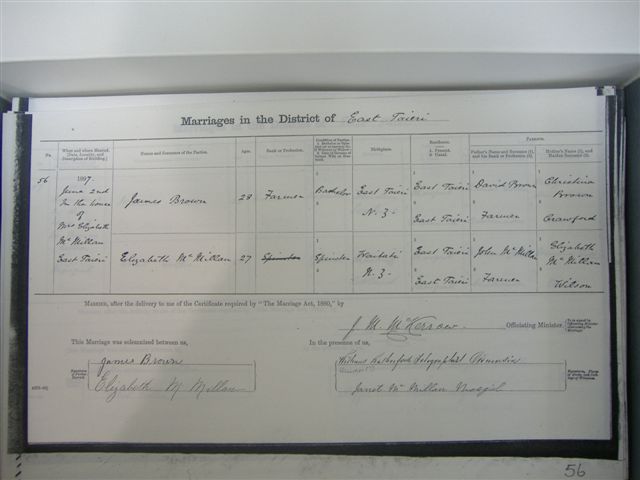 Marriages in the District of East Taieri
No.
When and where Married.
Names and Surnames of the Parties.
Ages.
Rank or Profession.
Condition of Parties.
Birthplace.
Residence.
1. Present.
2. Usual.
Parents.
Father's Name and Surname (1), and his Rank or Profession (2).
Mother's Name (1), and Maiden Surname (2).
56
1897.
June 2nd
In the house
of
Mrs Elizabeth
McMillan
East Taieri
James Brown
28
Farmer
Bachelor
East Taieri
N. Z-
East Taieri
East Taieri
David Brown
Farmer
Christina
Brown
Crawford
Elizabeth McMillan
27
Spinster
Spinster
Waitati
N. Z-
East Taieri
East Taieri
John McMillan
Farmer
Elizabeth
McMillan
Wilson
Married, after the delivery to me of the Certificate required by "The Marriage Act, 1880," by
J. M. McKerrow.
Officiating Minister.
This Marriage was solemnized between us,
In the presence of us,
James Brown
Elizabeth McMillan
Rutherford Telegraphist
Janet McMillan Mosgiel
56